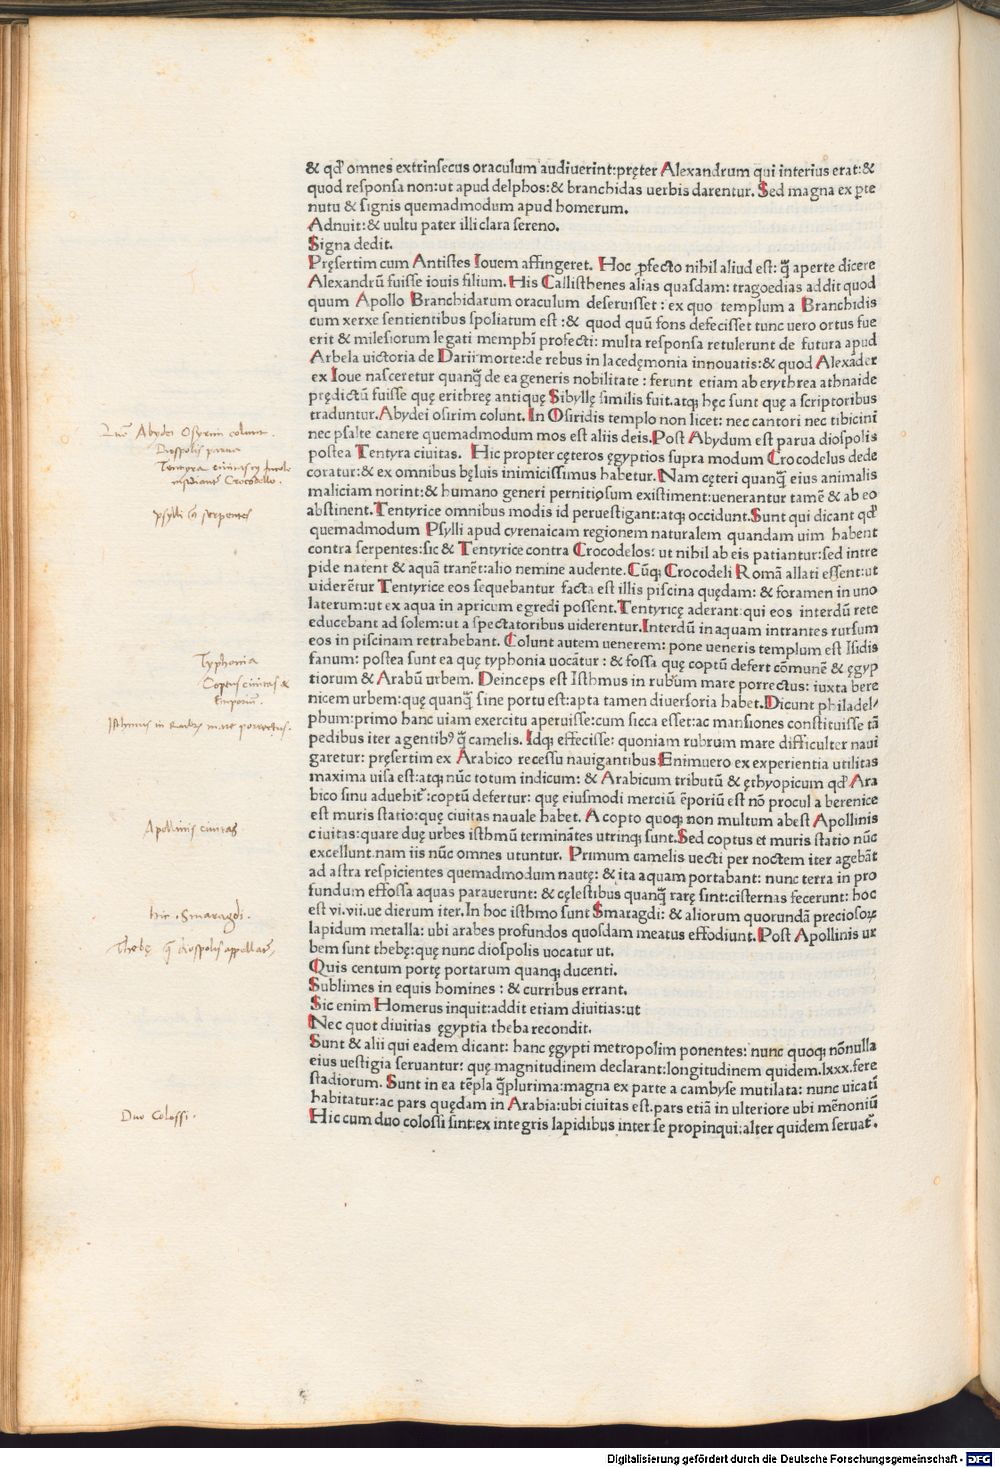 & qď omnes extrinsecus oraculum audiuerint:pręter Alexandrum qui interius erat:&
quod responsa non:ut apud delphos:& branchidas uerbis darentur. Sed magna ex ꝑte
nutu & signis quemadmodum apud homerum.
Adnuit:& uultu pater illi clara sereno.
Signa dedit.
Pręsertim cum Antistes Iouem affingeret. Hoc ꝓfecto nihil aliud est: q̃ aperte dicere
Alexandrũ fuisse iouis filium. His Callisthenes alias quasdam: tragoedias addit quod
quum Apollo Branchidarum oraculum deseruisset : ex quo templum a Branchidis
cum xerxe sentientibus spoliatum est :& quod quũ fons defecisset tunc uero ortus fue
erit & milesiorum legati memphĩ profecti: multa responsa retulerunt de futura apud
Arbela uictoria de Darii morte:de rebus in lacedęmonia innouatis:& quod Alexãder
ex Ioue nasceretur quanq̃ de ea generis nobilitate : ferunt etiam ab erythrea athnaide
prędictũ fuisse quę erithreę antiquę Sibyllę similis fuit.atqꝫ hęc sunt quę a scriptoribus
traduntur. Abydei osirim colunt. In Osiridis templo non licet: nec cantori nec tibicini
nec psalte canere quemadmodum mos est aliis deis.Post Abydum est parua diospolis
postea Tentyra ciuitas. Hic propter cęteros ęgyptios supra modum Crocodelus dede
coratur:& ex omnibus bęluis inimicissimus habetur. Nam cęteri quanq̃ eius animalis
maliciam norint:& humano generi pernitiosum existiment:uenerantur tamẽ & ab eo
abstinent.Tentyrice omnibus modis id peruestigant:atqꝫ occidunt.Sunt qui dicant qď
quemadmodum Psylli apud cyrenaicam regionem naturalem quandam uim habent
contra serpentes:sic & Tentyrice contra Crocodelos: ut nihil ab eis patiantur:sed intre
pide natent & aquã tranẽt:alio nemine audente. Cũqꝫ Crocodeli Romã allati essent:ut
uiderẽtur Tentyrice eos sequebantur facta est illis piscina quędam: & foramen in uno
laterum:ut ex aqua in apricum egredi possent.Tentyricę aderant:qui eos interdũ rete
educebant ad solem:ut a spectatoribus uiderentur.Interdũ in aquam intrantes rursum
eos in piscinam retrahebant. Colunt autem uenerem: pone ueneris templum est Isidis
fanum: postea sunt ea quę typhonia uocãtur : & fossa quę coptũ defert cõmunẽ & ęgyp
tiorum & Arabũ urbem. Deinceps est Isthmus in rubrum mare porrectus: iuxta bere
nicem urbem:quę quanq̃ sine portu est:apta tamen diuersoria habet.Dicunt philadel/
phum:primo hanc uiam exercitu aperuisse:cum sicca esset:ac mansiones constituisse tã
pedibus iter agentibꝰ q̃ camelis. Idqꝫ effecisse: quoniam rubrum mare difficulter naui
garetur: pręsertim ex Arabico recessu nauigantibus.Enimuero ex experientia utilitas
maxima uisa est:atqꝫ nũc totum indicum: & Arabicum tributũ & ęthyopicum qď Ara
bico sinu aduehit̃:coptũ defertur: quę eiusmodi merciũ ẽporiũ est nõ procul a berenice
est muris statio:quę ciuitas nauale habet. A copto quoqꝫ non multum abest Apollinis
ciuitas:quare duę urbes isthmũ terminãtes utrinqꝫ sunt.Sed coptus et muris statio nũc
excellunt.nam iis nũc omnes utuntur. Primum camelis uecti per noctem iter agebãt
ad astra respicientes quemadmodum nautę: & ita aquam portabant: nunc terra in pro
fundum effossa aquas parauerunt: & cęlestibus quanq̃ rarę sint:cisternas fecerunt: hoc
est vi.vii.ue dierum iter.In hoc isthmo sunt Smaragdi: & aliorum quorundã preciosoꝝ
lapidum metalla: ubi arabes profundos quosdam meatus effodiunt.Post Apollinis ur
bem sunt thebę:quę nunc diospolis uocatur ut.
Quis centum portę portarum quanqꝫ ducenti.
Sublimes in equis homines : & curribus errant.
Sic enim Homerus inquit:addit etiam diuitias:ut
Nec quot diuitias ęgyptia theba recondit.
Sunt & alii qui eadem dicant: hanc ęgypti metropolim ponentes: nunc quoqꝫ nõnulla
eius uestigia seruantur: quę magnitudinem declarant:longitudinem quidem.lxxx.fere
stadiorum. Sunt in ea tẽpla q̃plurima:magna ex parte a cambyse mutilata: nunc uicatĩ
habitatur:ac pars quędam in Arabia:ubi ciuitas est.pars etiã in ulteriore ubi mẽnoniũ
Hic cum duo colossi sint:ex integris lapidibus inter se propinqui:alter quidem seruat̃.
Abydei Osyrim colunt.
Diospolis parua
Tentyra ciuitas
Crocodello.
psylli serpentes
Typhonia
Coptus ciuitas &
Emporiũ.
Isthmus in Rubrũ mare porrectus.
Apollinis ciuitas
hic Smaragdi.
Thebę q̃ diospolis appellat̃
Duo Colossi.
Digitalisierung gefördert durch die Deutsche Forschungsgemeinschaft - DFG